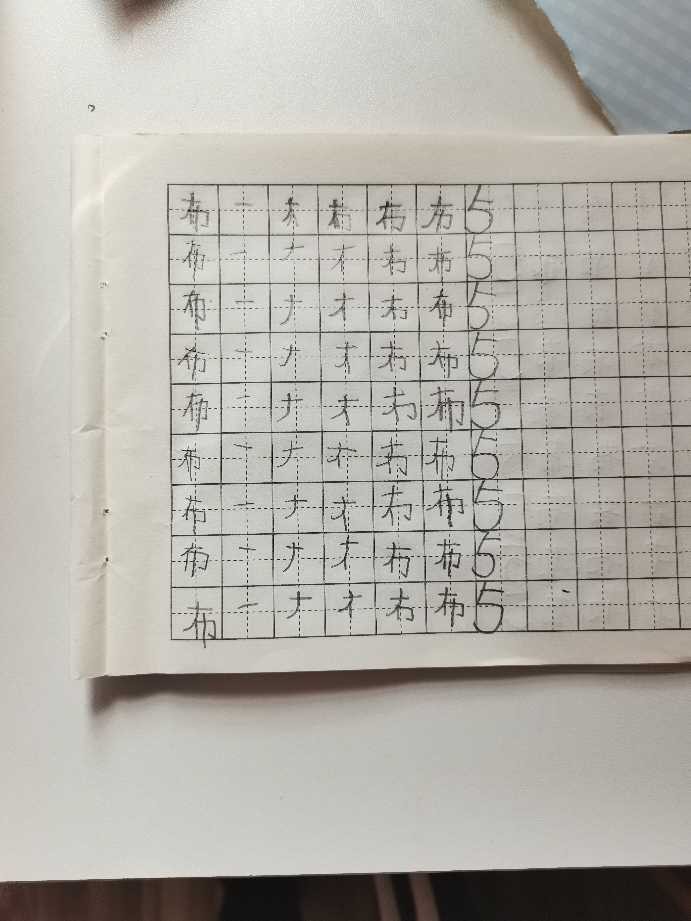 布 一 ナ 才 右 布 5
布 一 ナ 才 右 布 5
布 一 ナ 才 右 布 5
布 一 ナ 才 右 布 5
布 一 ナ 才 右 布 5
布 一 ナ 右 布 5
布 一 ナ 才 布 5
布 一 ナ 才 布 5
布 一 ナ 才 右 布 5